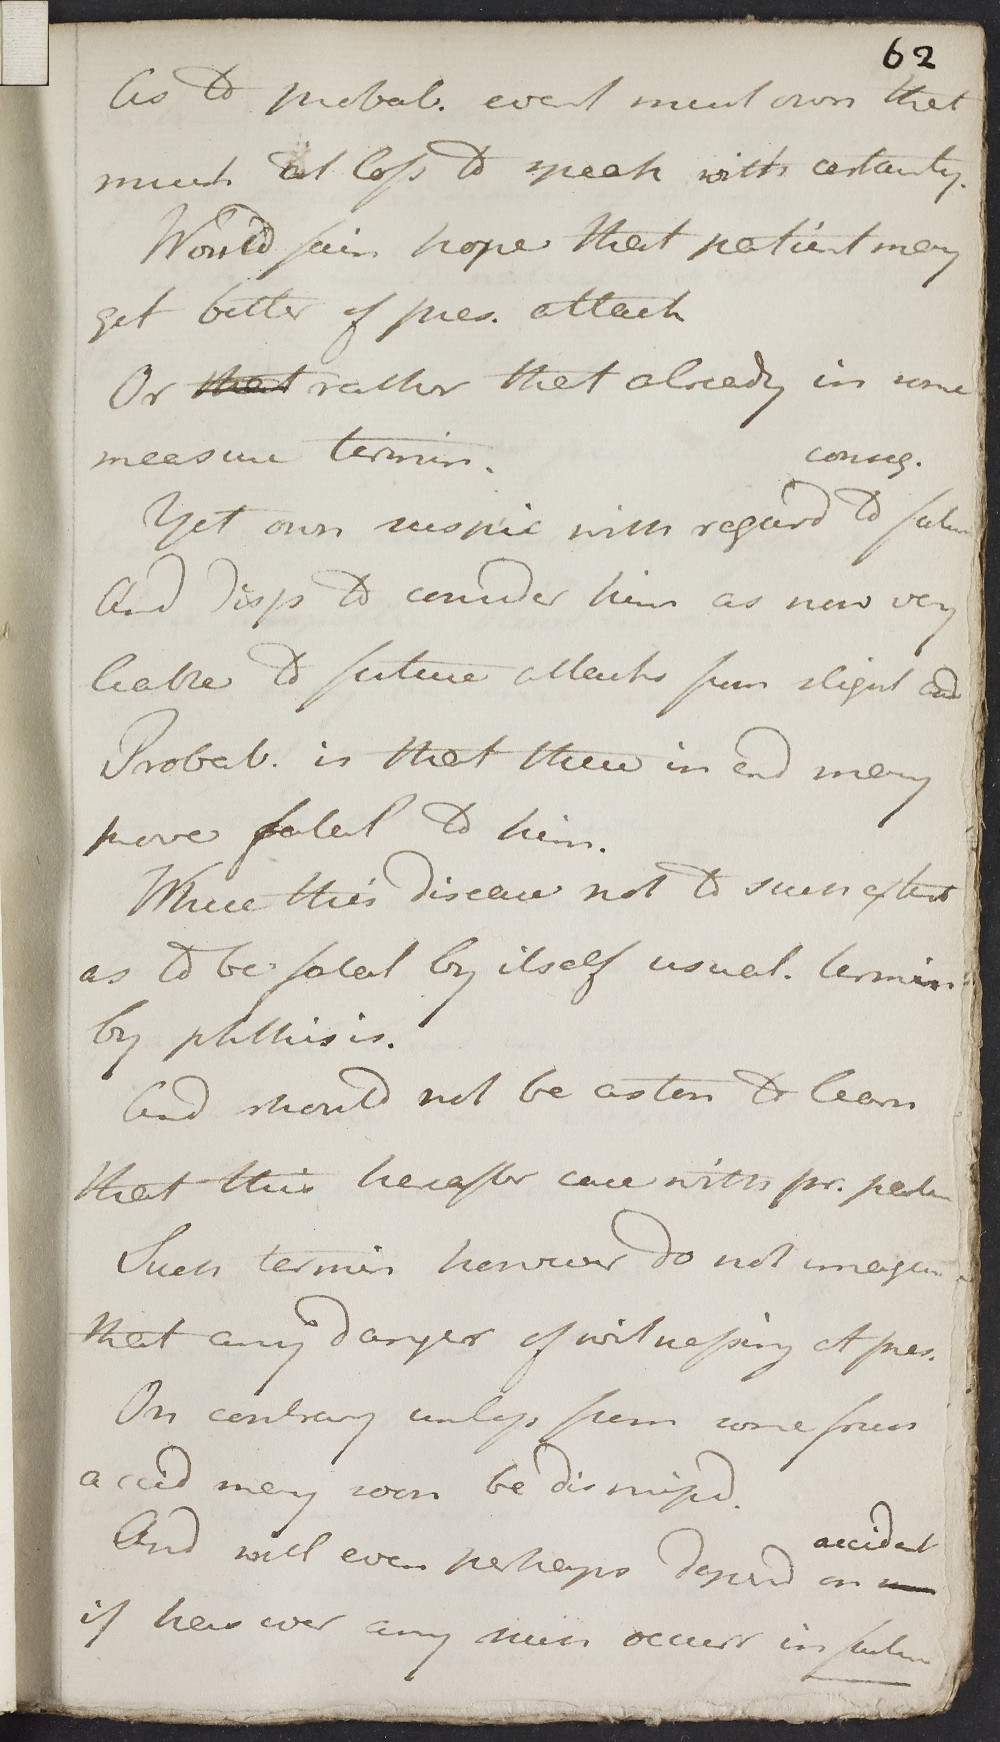 62
As to probab. event must own that
much at loss to speak with certainty.
Would fain hope that patient may
get better of pres. attack
Or that rather that already in some
measure termin.
conseq.
Yet own suspic with regard to future
And disp to consider him as now very
liable to future attacks from slight
Probab. is that these in end may
prove fatal to him.
Where this disease not to such extent
as to be fatal by itself usual. termin
by phthisis.
And should not be aston to learn
that this hereafter case with pr. patien
Such termin however do not imagine
that any danger of witnessing at pres.
On contrary unless from some fresh
accid may soon be dismissd.
accident
And will even perhaps depend on
if however any such occurr in future